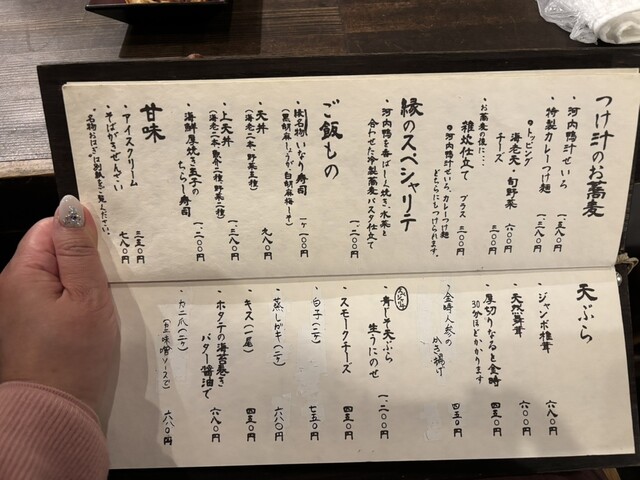 つけ汁のお蕎麦
・河内鴨汁せいろ 一、五八〇円
・特製カレーつけ麺 一、三八〇円
◎トッピング
海老天・旬野菜 六〇〇円
チーズ 三〇〇円
・お蕎麦の後に・・・
雑炊仕立て プラス 三〇〇円
◎河内鴨汁せいろ、カレーつけ麺
どちらにもつけられます。
縁のスペシャリテ
・河内鴨を香ばしく焼き、水菜と
合わせた冷製蕎麦パスタ仕立て
一、二〇〇円
ご飯もの
・縁名物いなり寿司 一ヶ 一〇〇円
(黒胡麻しょうが、白胡麻梅しそ)
・天丼 九八〇円
(海老二本、野菜五種)
・上天丼 一、三八〇円
(海老二本、魚介二種、野菜二種)
・海鮮厚焼き玉子の
ちらし寿司 一、二〇〇円
甘味
・アイスクリーム 三五〇円
・そばがきぜんざい 七八〇円
・名物おはぎは別紙をご覧ください。
天ぷら
・ジャンボ椎茸 六八〇円
・天然舞茸 六〇〇円
・厚切りなると金時 四五〇円
30分ほどかかります
・金時人参の
かき揚げ 四五〇円
・青じそ天ぷら
生うにのせ 一、二〇〇円
・スモークチーズ 四五〇円
・白子(二ヶ) 七五〇円
・蒸しガキ(二ヶ) 六八〇円
・キス(一尾) 四五〇円
・ホタテの海苔巻き
バター醤油で 六八〇円
・カニ爪(二ヶ) 六八〇円
(カニ味噌ソースで)